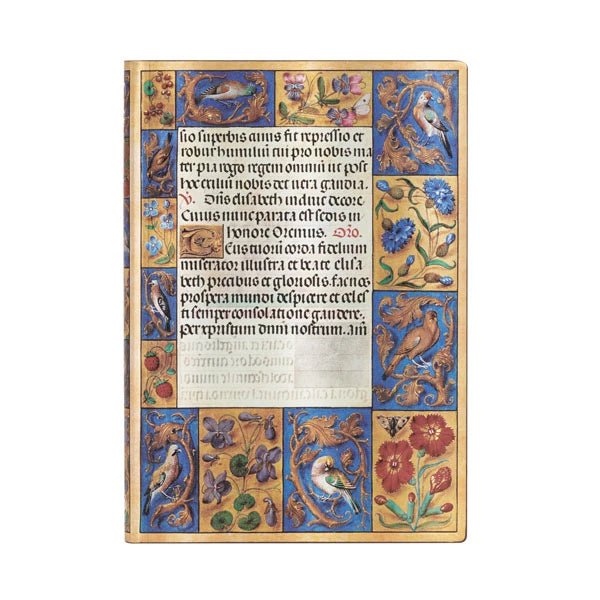 sio superbis fit repressio et
robur humiliū tui pro nobis ma
ter pia rego regem omniū ut post
hoc exiliū nobis det vera gaudia.
V. Dn̄s elisabeth induit decore.
Cuius nunc parata est sedis in
honore Oremus. Oro.
Deus tuorū corda fidelium
miserator illustra et beate elisa
beth precibus et gloriosis. fac nos
prospera mundi despicere et celes
ti semper consolatione gaudere.
per xpristum dnm̄ nostrum. am̄